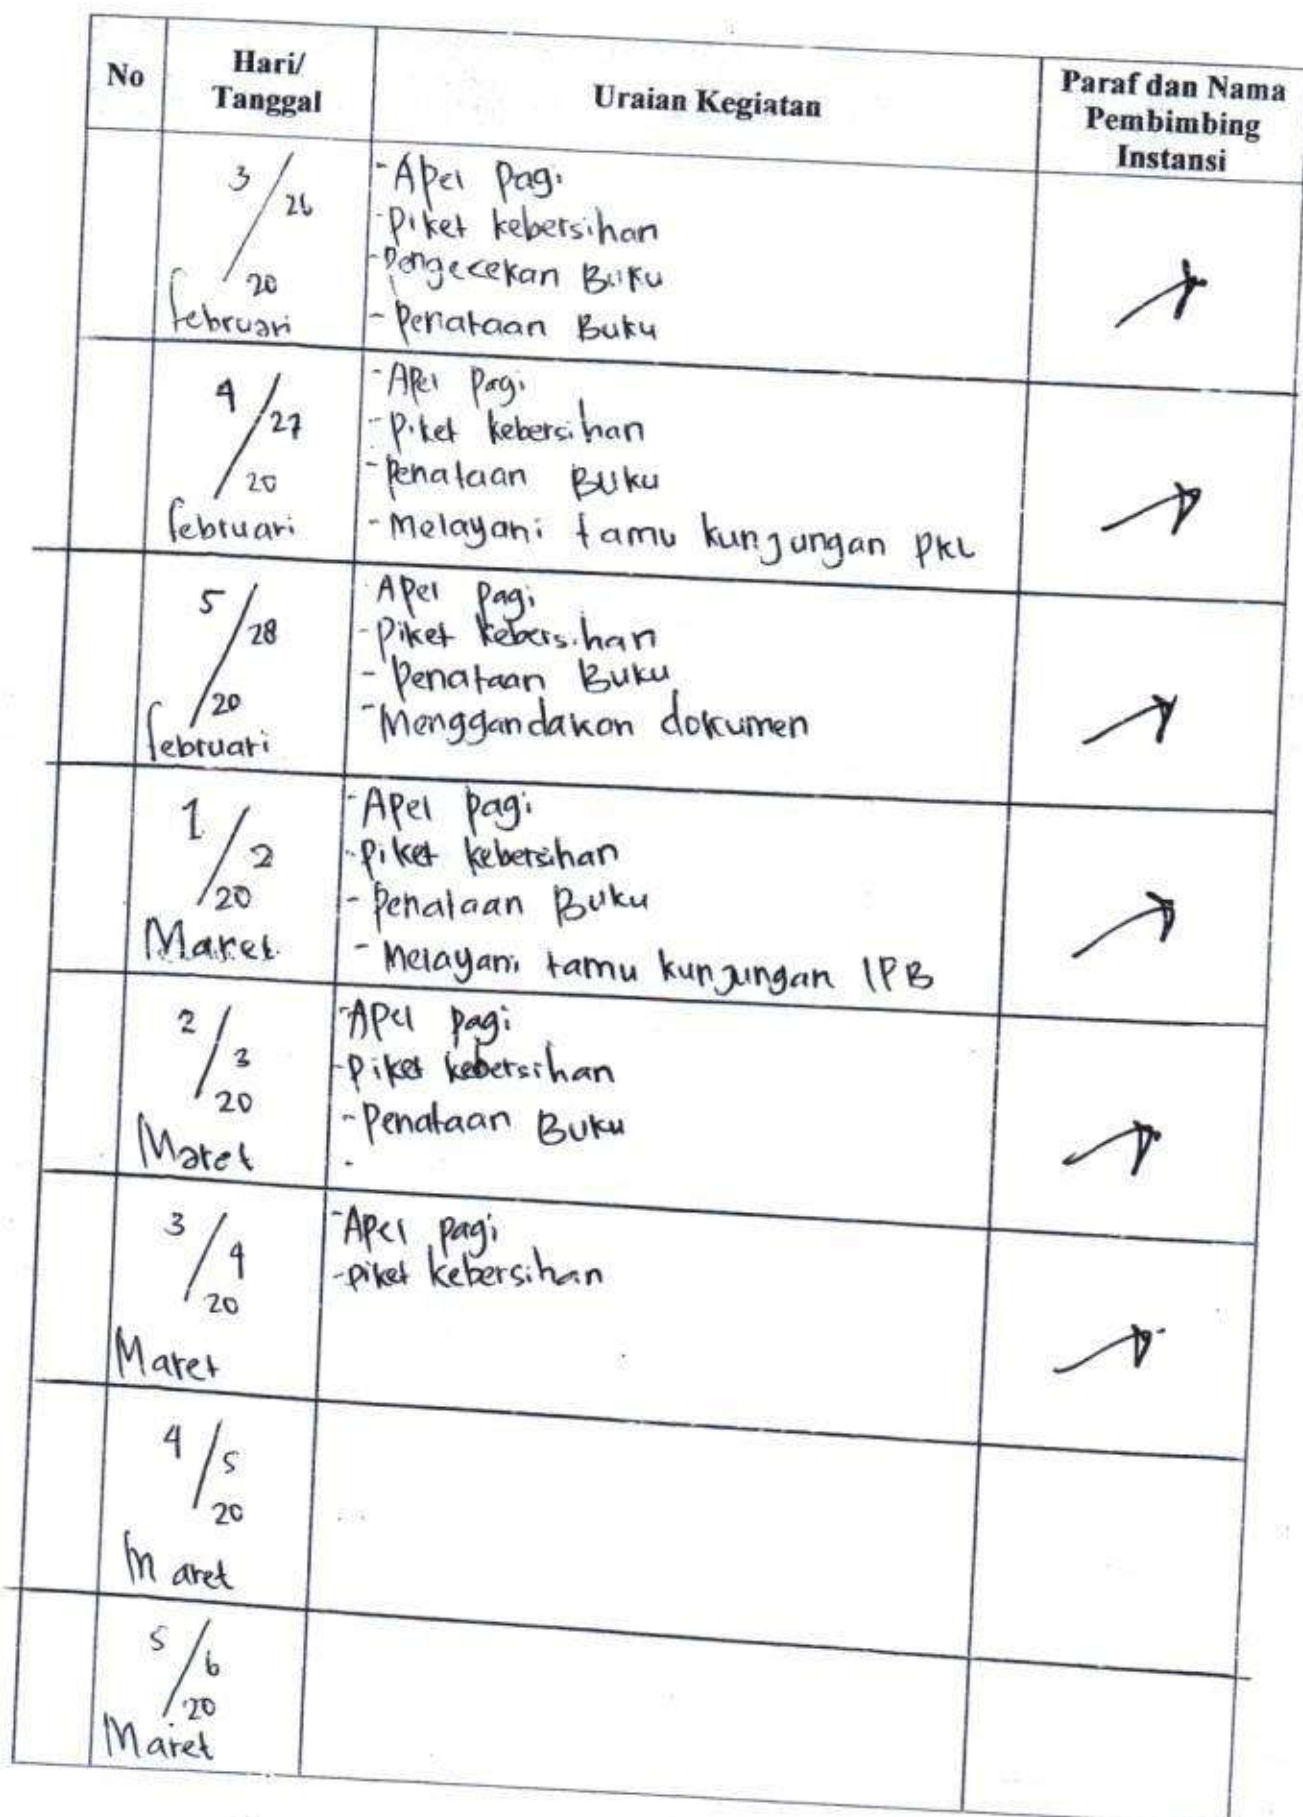 No
Hari/
Tanggal
Uraian Kegiatan
Paraf dan Nama
Pembimbing
Instansi
3/26
20
februari
- Apel Pagi
- Piket kebersihan
- Pengecekan Buku
- Penataan Buku
4/27
20
februari
- Apel Pagi
- Piket kebersihan
- Penataan Buku
- Melayani tamu kunjungan PKL
5/28
20
februari
Apel Pagi
- Piket kebersihan
- Penataan Buku
- Menggandakan dokumen
1/2
20
Maret
- Apel pagi
- Piket kebersihan
- Penataan Buku
- Melayani tamu kunjungan IPB
2/3
20
Maret
- Apel pagi
- Piket kebersihan
- Penataan Buku
3/4
20
Maret
- Apel pagi
- piket kebersihan
4/5
20
Maret
5/6
20
Maret